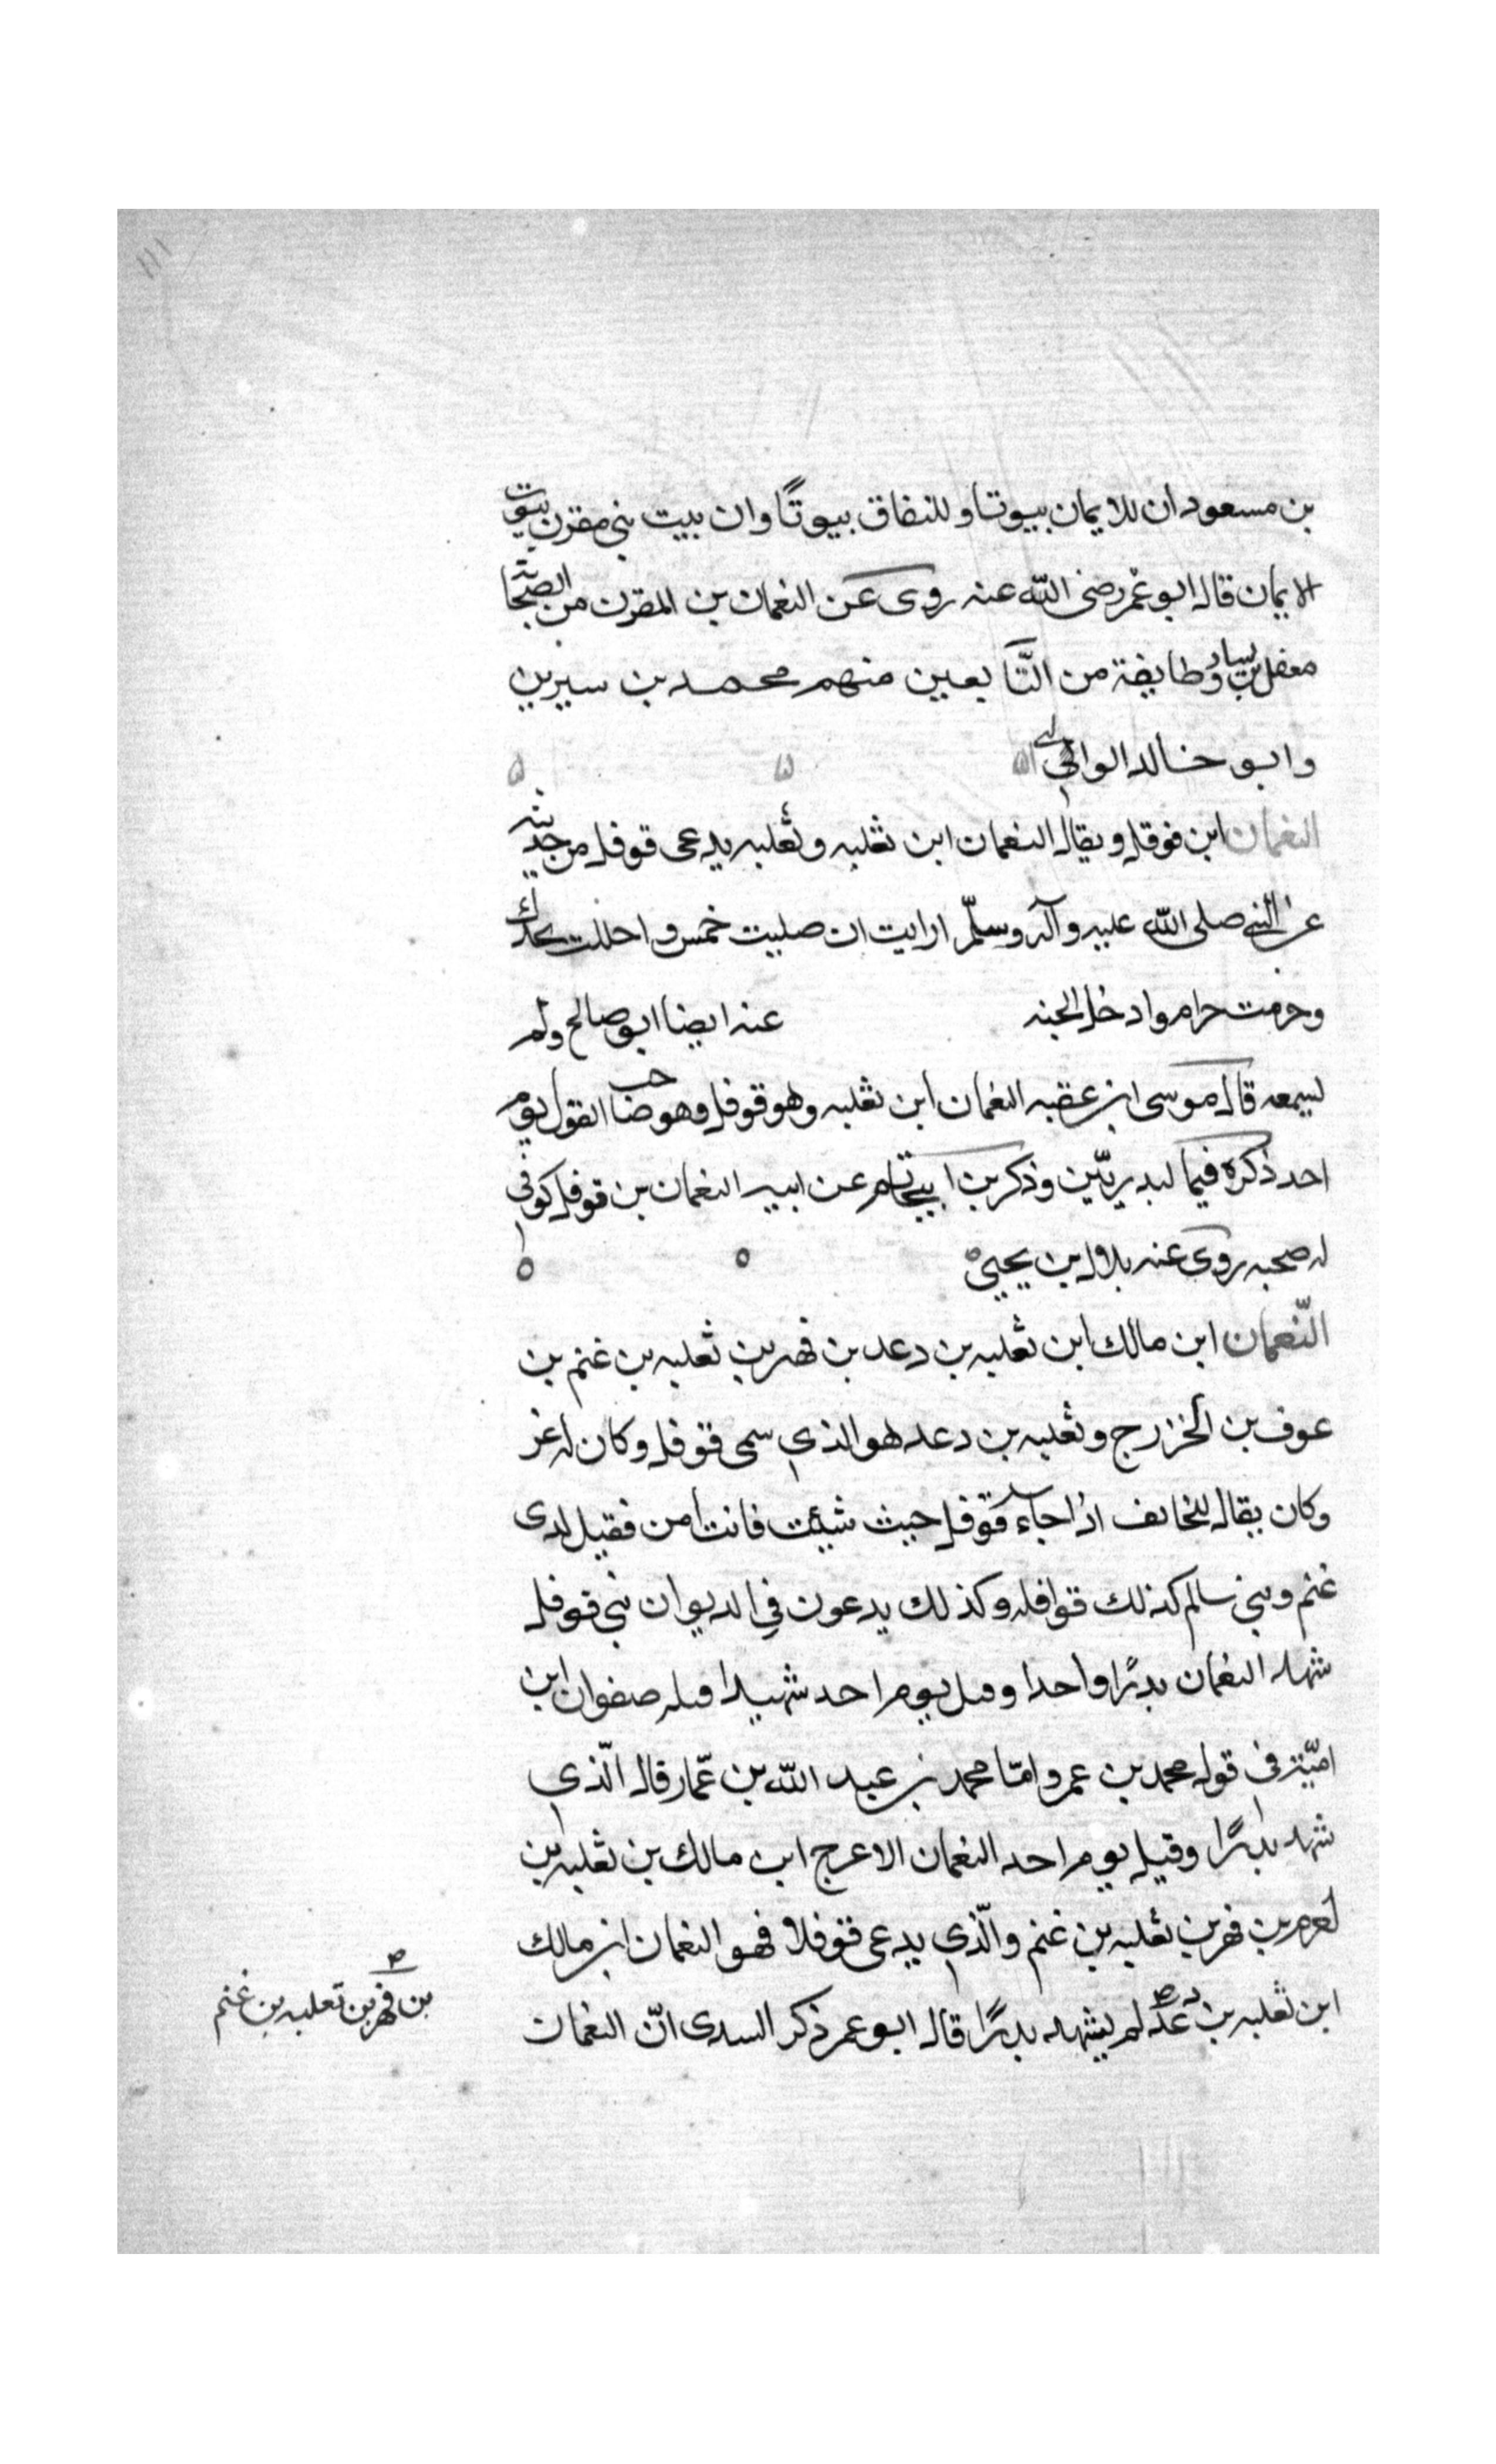 ١١١
بن مسعود ان للايمان بيوتا وللنفاق بيوتًا وان بيت بني مقرن بيوت
الايمان قاله ابو عمر رضى الله عنه روى عن النعمان بن المقرن من الصحابة
معقل بن يسار وطايفة من التّابعين منهم محمد بن سيرين
وابو خالد الوالبي
النعمان ابن قوقل ويقال النعمان ابن ثعلبه وثعلبه يدعى قوقل من حديثه
عن النبي صلى الله عليه وآله وسلّم ارايت ان صليت خمس واحللت
وحرمت حرام وادخل الجنه عنه ايضا ابو صالح ولم
يسمعه قال موسى ابن عقبه النعمان ابن ثعلبه وهو قوقل وهو صاحب القول يوم
احد ذكره فيما لبدريّين وذكر بن ابي حاتم عن ابيه النعمان بن قوقل كوفي
له صحبه روى عنه بلال بن يحيى
النّعمان ابن مالك ابن ثعلبه بن دعد بن فهر بن ثعلبه بن غنم بن
عوف بن الخزرج وثعلبه بن دعد هو الذي سمى قوقل وكان له عز
وكان يقال للخائف اذا جاء قوقل حيث شيئت فانت امن فقيل لبنى
غنم وبني سالم كذلك قواقله وكذلك يدعون في الديوان بني قوقل
شهد النعمان بدرًا واحدا وقتل يوم احد شهيدا قتله صفوان ابن
اميّة في قول محمد بن عمر وامّا محمد بن عبد الله بن عمّار قال الّذي
شهد بدرًا وقيل يوم احد النعمان الاعرج ابن مالك بن ثعلبه بن
فهر بن ثعلبه بن غنم والّذي يدعى قوقلا فهو النعمان ابن مالك
ابن ثعلبه بن دعد لم يشهد بدرًا قال ابو عمر ذكر السدى انّ النعمان
بن فهر بن ثعلبه بن غنم